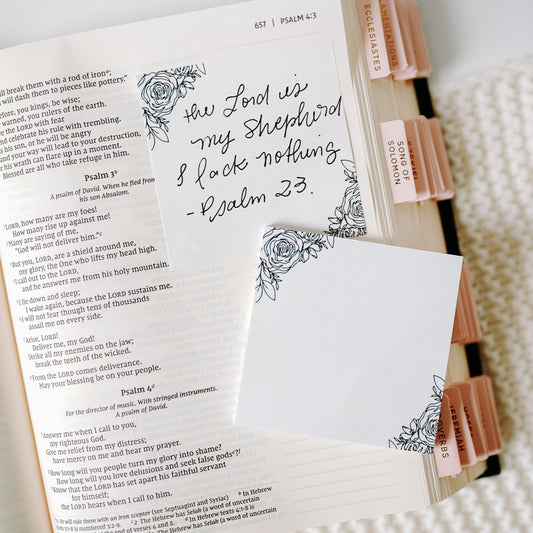 657 | PSALM 4:3
will break them with a rod of iron
will dash them to pieces like pottery."
you kings, be wise;
warned, you rulers of the earth.
the LORD with fear
and celebrate his rule with trembling.
his son, or he will be angry
and your way will lead to your destruction,
his wrath can flare up in a moment.
Blessed are all who take refuge in him.
Psalm 3
A psalm of David. When he fled from
his son Absalom.
LORD, how many are my foes!
How many rise up against me!
Many are saying of me,
"God will not deliver him."
But you, LORD, are a shield around me,
my glory, the One who lifts my head high.
I call out to the LORD,
and he answers me from his holy mountain.
I lie down and sleep;
I wake again, because the LORD sustains me.
I will not fear though tens of thousands
assail me on every side.
Arise, LORD!
Deliver me, my God!
Strike all my enemies on the jaw;
break the teeth of the wicked.
From the LORD comes deliverance.
May your blessing be on your people.
Psalm 4
For the director of music. With stringed instruments.
A psalm of David.
Answer me when I call to you,
my righteous God.
Give me relief from my distress;
have mercy on me and hear my prayer.
How long will you people turn my glory into shame?
How long will you love delusions and seek false gods?
Know that the LORD has set apart his faithful servant
for himself;
the LORD hears when I call to him.
will rule them with an iron scepter (see Septuagint and Syriac) b In Hebrew
texts 3:1-8 is numbered 3:2-9. c 2 The Hebrew has Selah (a word of uncertain
end of verses 4 and 8. d In Hebrew texts 4:1-8 is
The Hebrew has Selah (a word of uncertain
the Lord is
my Shepherd
I lack nothing
-Psalm 23.
ECCLESIASTES
LAMENTATIONS
SONG OF
SOLOMON
EZEKIEL
PROVERBS
JEREMIAH